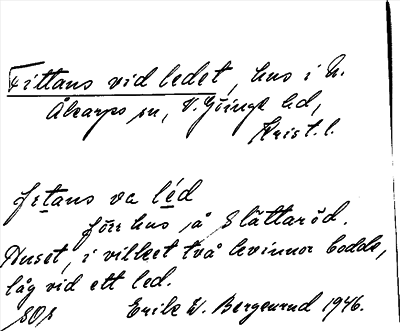 Fittans vid ledet, hus i N.
Åkarps sn, V. Göinge hd,
Krist. l.
fetans va léd
förr hus på Slättaröd.
Huset, i vilket två kvinnor bodde,
låg vid ett led.
SOS Erik W. Bergenrud 1946.